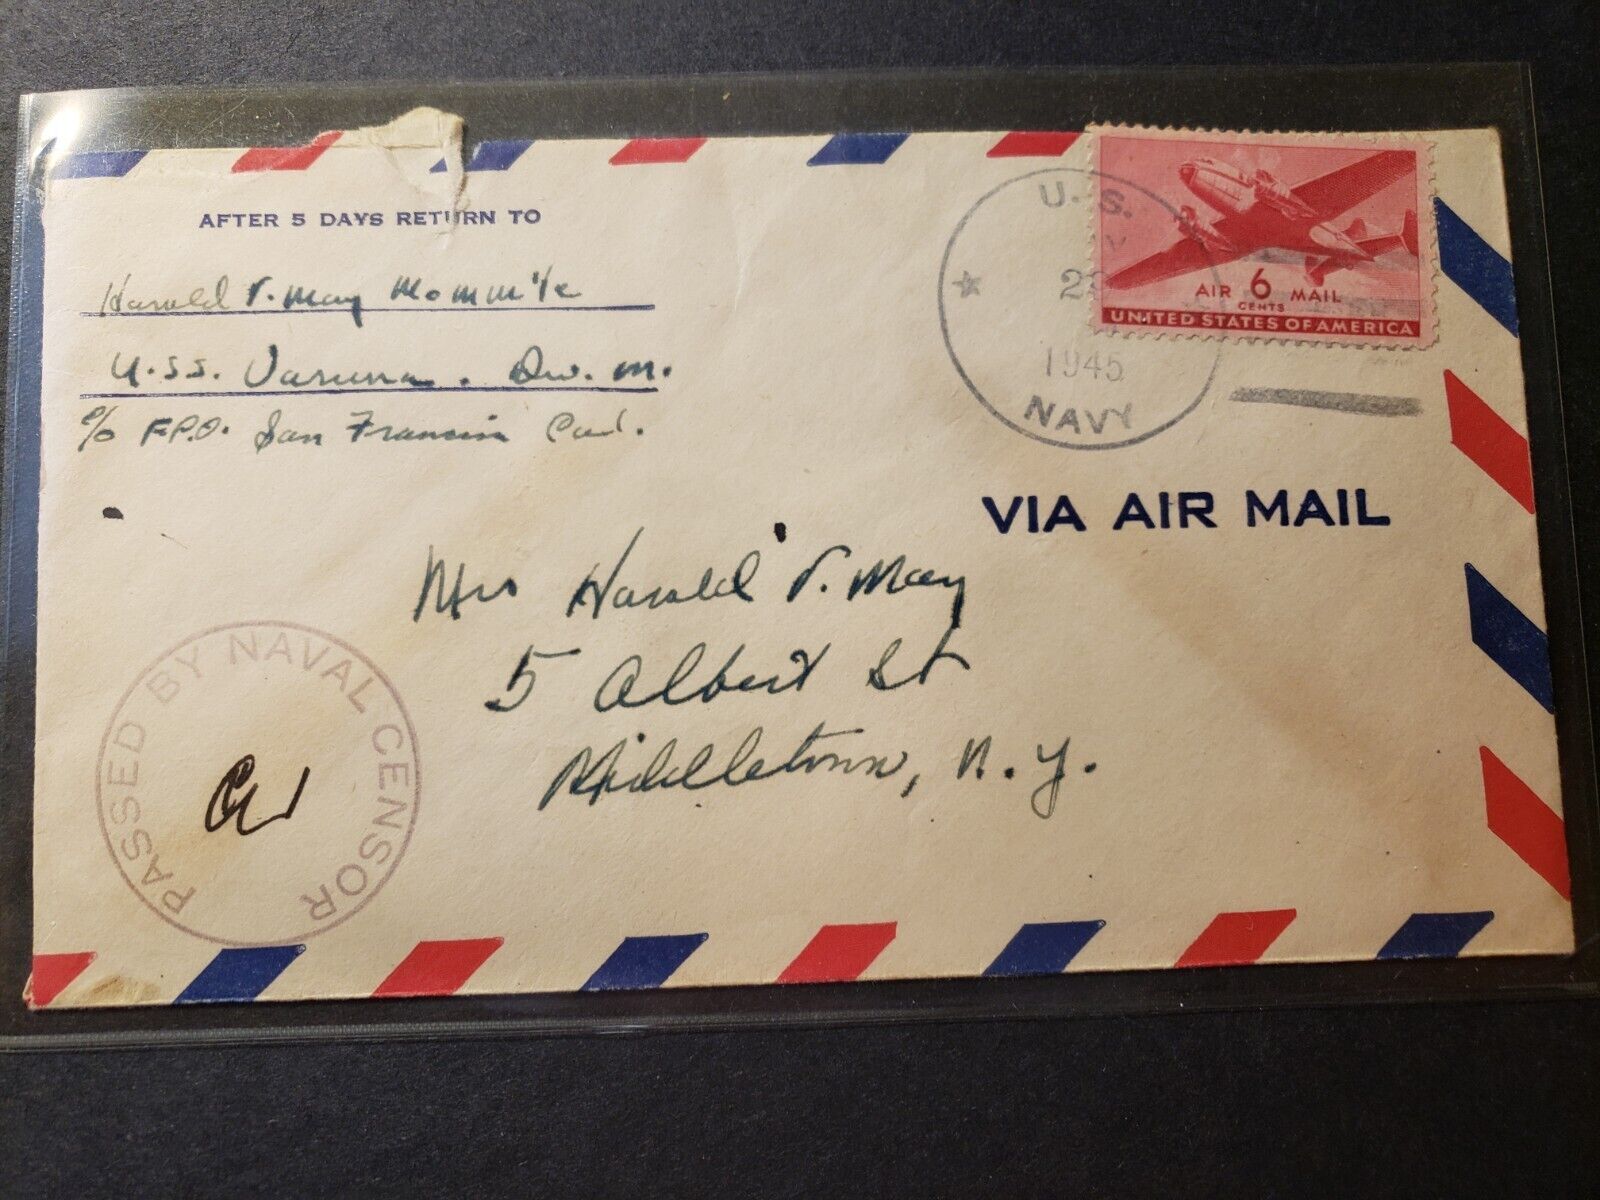 AFTER 5 DAYS RETURN TO
Harold V. May MoMM 1/c
U.S.S. Varuna. Div. M.
c/o F.P.O. San Francisco Cal.
U. S.
1945
NAVY
AIR 6 MAIL
CENTS
UNITED STATES OF AMERICA
VIA AIR MAIL
Mrs Harold V. May
5 Albert St
Middletown, N.Y.
PASSED BY NAVAL CENSOR